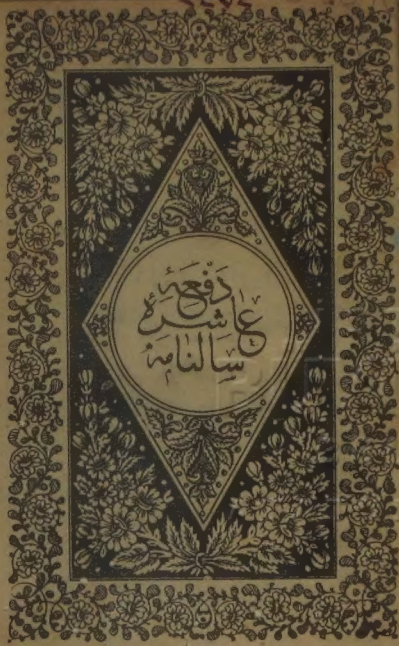 دفعهٔ
عاشره
سالنامه